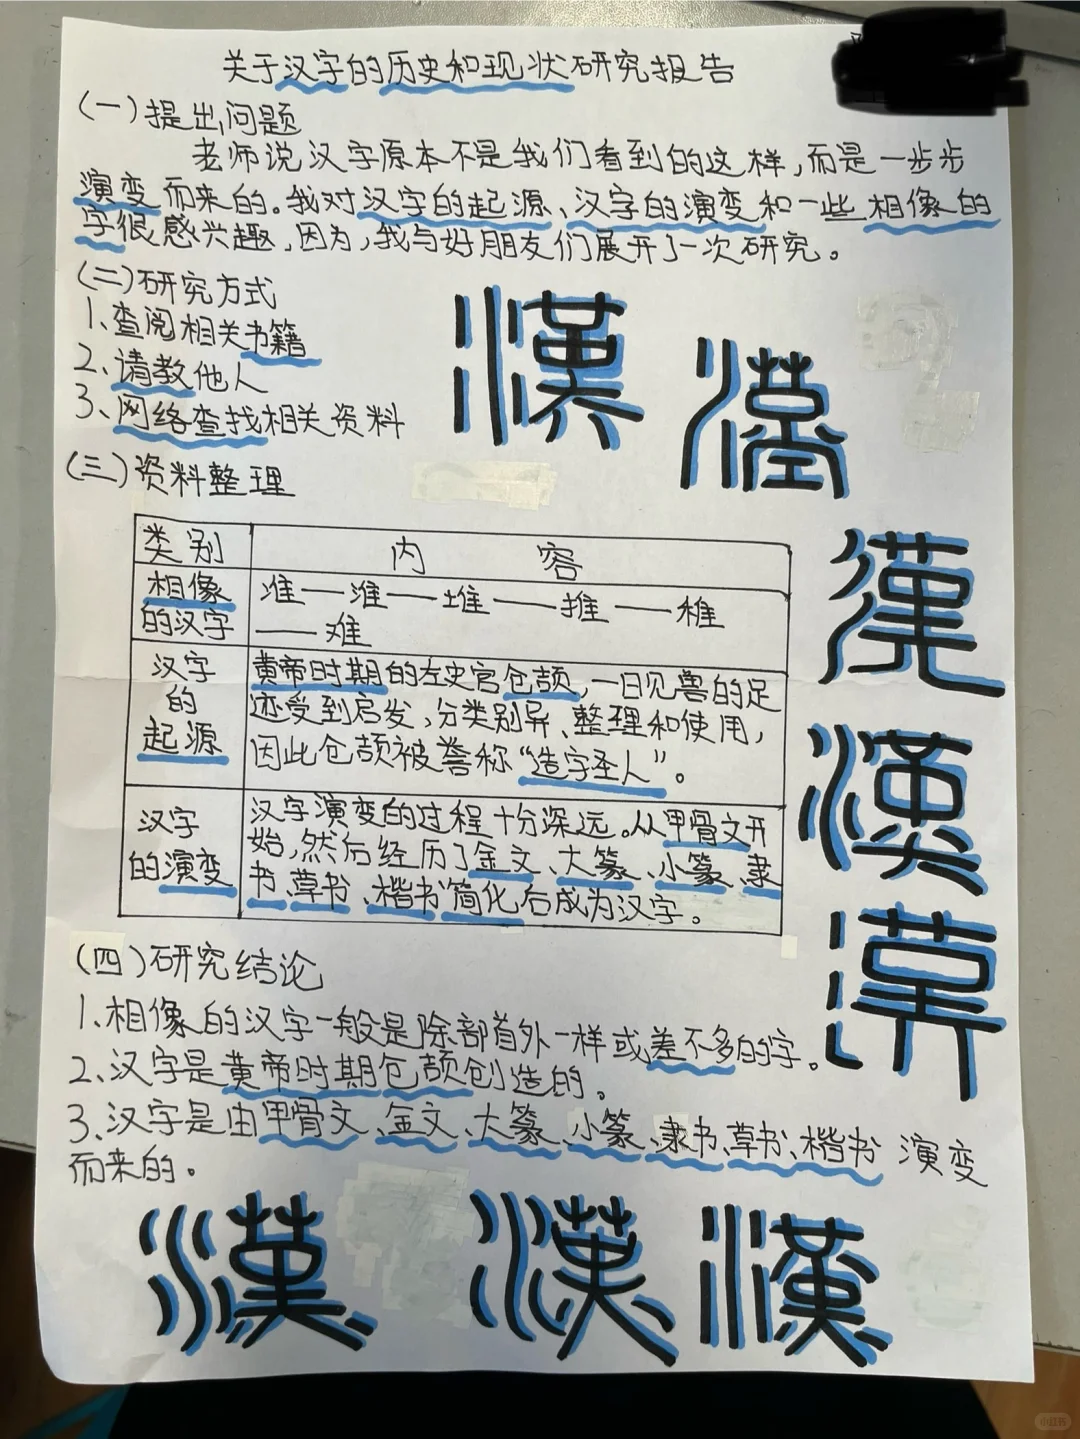 关于汉字的历史和现状研究报告
(一)提出问题
老师说汉字原本不是我们看到的这样,而是一步步
演变而来的。我对汉字的起源、汉字的演变和一些相像的
字很感兴趣,因为,我与好朋友们展开了一次研究。
(二)研究方式
1、查阅相关书籍
2、请教他人
3、网络查找相关资料
漢
漢
(三)资料整理
类别 内容
相像
的汉字
准——淮——堆——推——稚
——难
汉字
的
起源
黄帝时期的左史官仓颉,一日见兽的足
迹受到启发,分类别异、整理和使用,
因此仓颉被誉称“造字圣人”。
汉字
的演变
汉字演变的过程十分深远。从甲骨文开
始,然后经历了金文、大篆、小篆、隶
书、草书、楷书简化后成为汉字。
漢
漢
漢
(四)研究结论
1、相像的汉字一般是除部首外一样或差不多的字。
2、汉字是黄帝时期仓颉创造的。
3、汉字是由甲骨文、金文、大篆、小篆、隶书、草书、楷书 演变
而来的。
漢 漢 漢
小红书